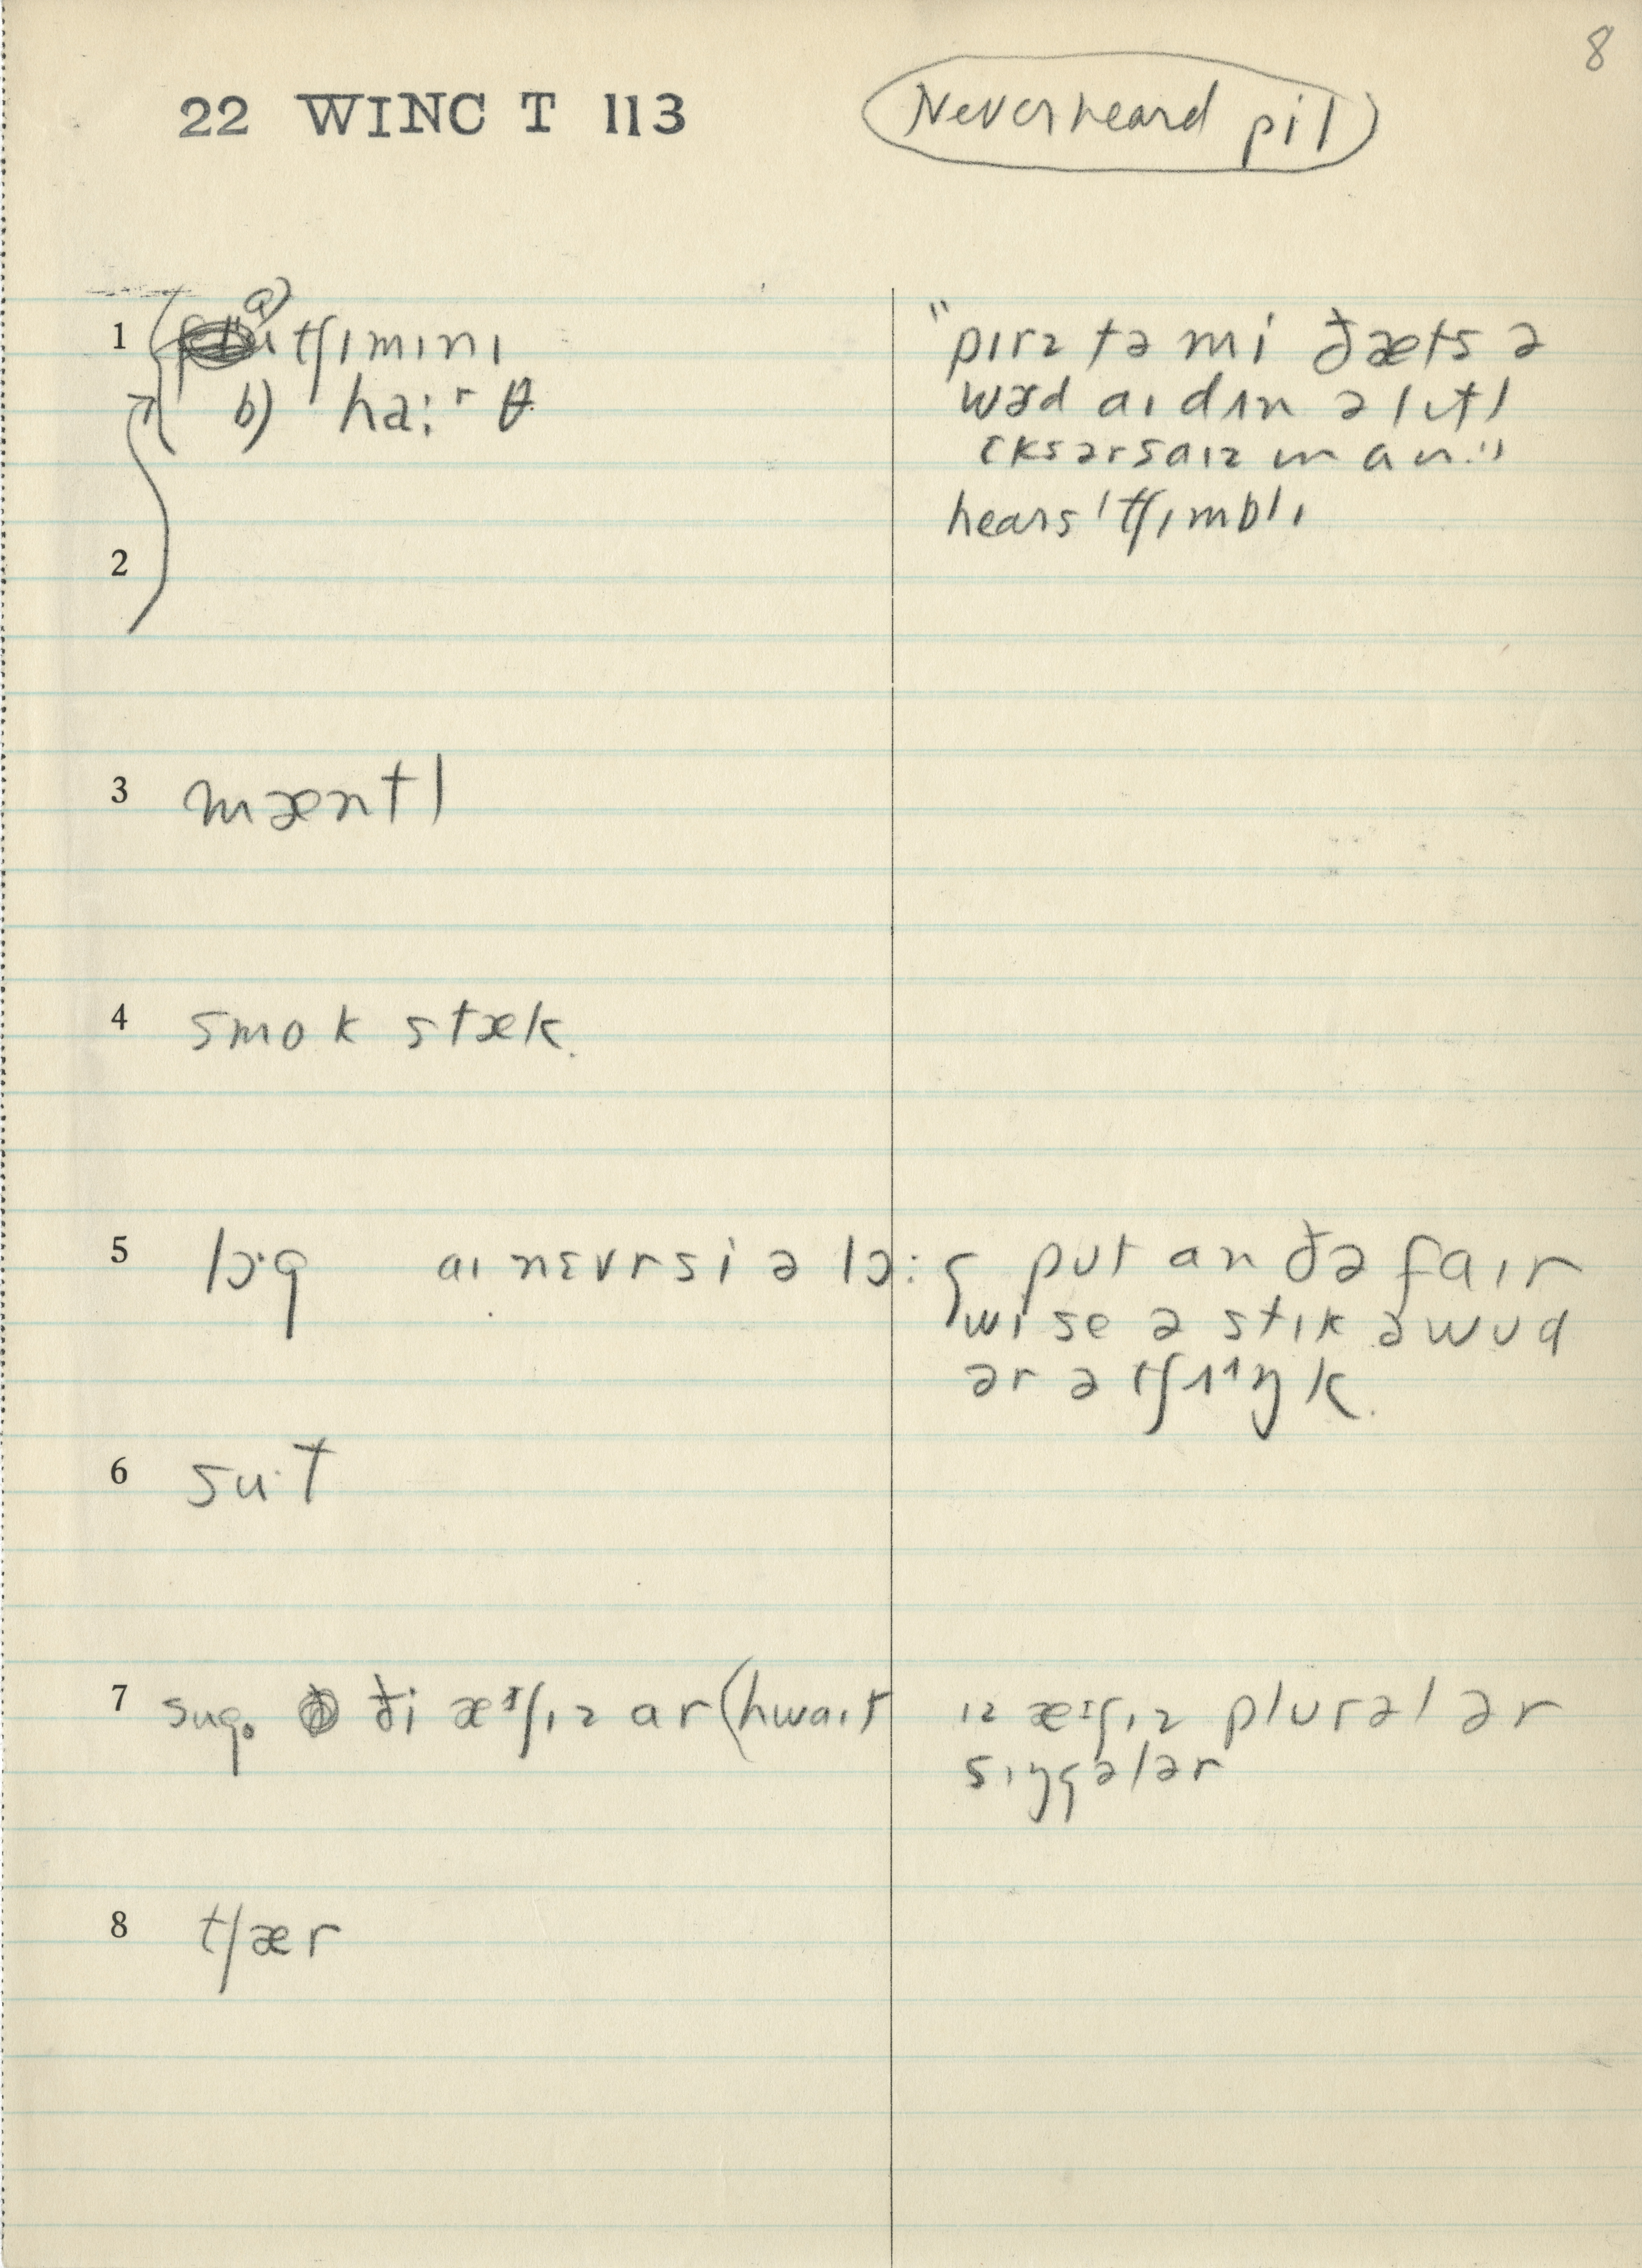 8
22 WINC T 113
Never heard pil
1 a) tʃɪmɪnɪ
b) ha:rθ
"pɪrz tə mi ðæts ə
wɚd aɪ dʌn ə lɪtl
ɛksərsaɪzɪn ɑn."
hears 'tʃɪmblɪ
2
3 mæntl
4 smok stæk.
5 lɔ·g aɪ nɛvr si ə lɔ:g put ɑn ðə faɪr
wi se ə stɪk ə wʊd
ər ə tʃʌŋk.
6 su·t
7 sug. ði æᶦʃɪz ɑr (hwaɪt ɪz æᶦʃɪz plurəl ər
sɪŋgələr
8 tʃær